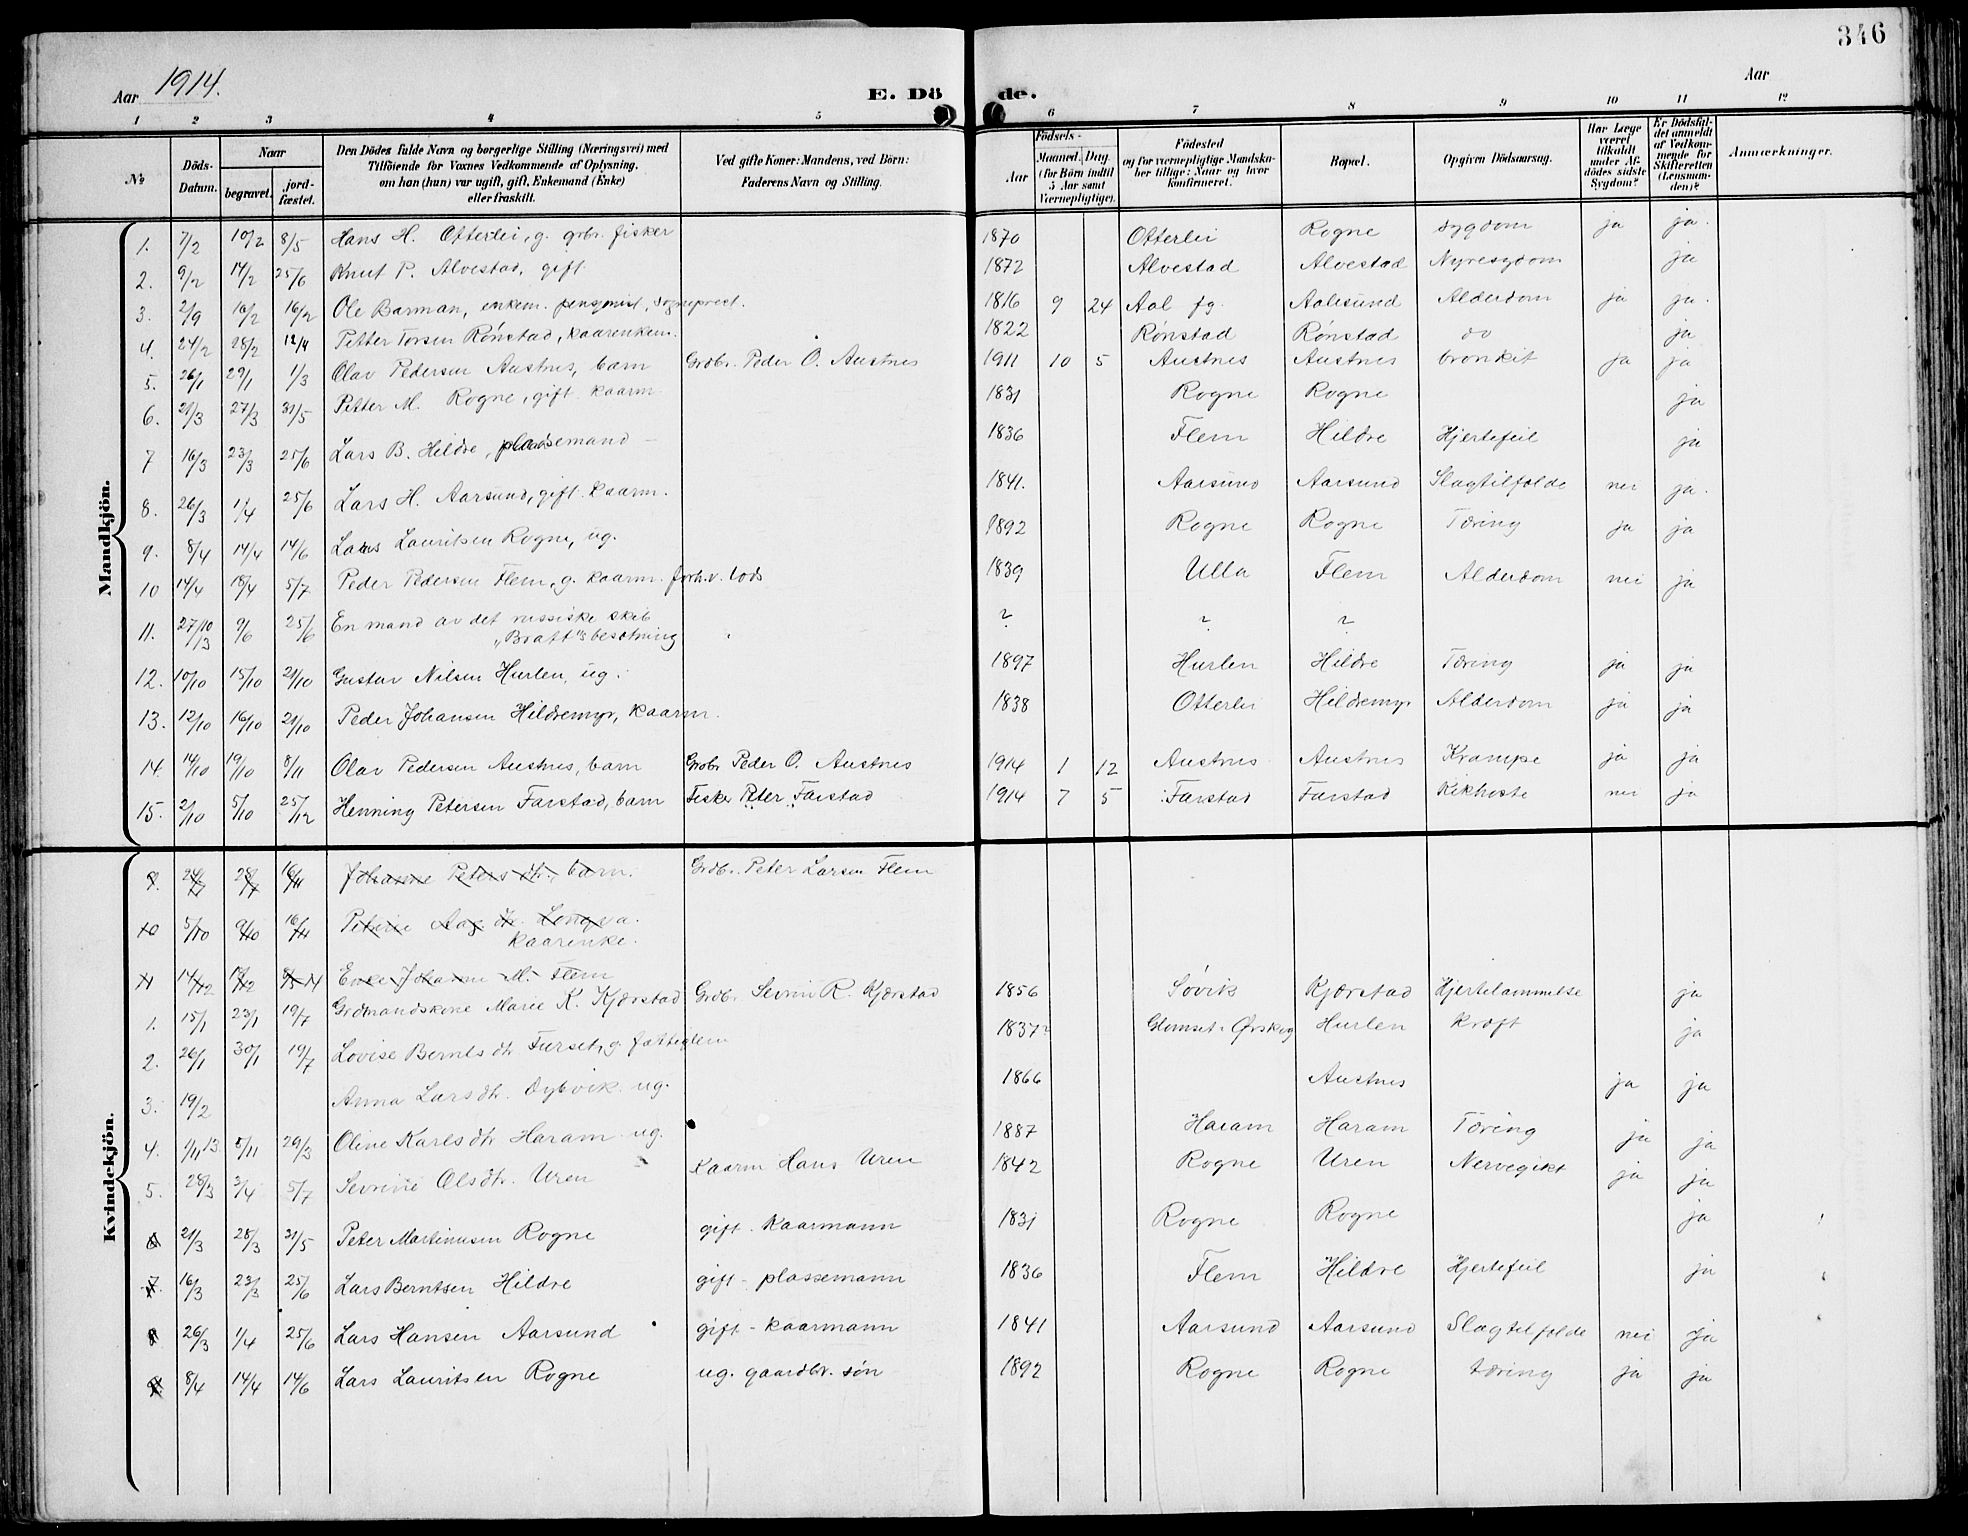 346
Aar 1914.
E. Döde.
Aar
1 2 3 4 5 6 7 8 9 10 11 12
No
Döds-Datum.
Naar
begravet.
jord-fæstet.
Den Dödes fulde Navn og borgerlige Stilling (Næringsvei) med
Tilföiende for Voxnes Vedkommende af Oplysning,
om han (hun) var ugift, gift, Enkemand (Enke)
eller fraskilt.
Ved gifte Koner: Mandens, ved Börn:
Faderens Navn og Stilling.
Födsels-
Aar
Maaned. Dag.
(for Börn indtil
5 Aar samt
Værnepligtige).
Födested
og for værnepligtige Mandska-
ber tillige: Naar og hvor
konfirmeret.
Bopæl.
Opgiven Dödsaarsag.
Har Læge
været
tilkaldt
under Af-
dödes sidste
Sygdom?
Er Dödsfal-
det anmeldt
af Vedkom-
mende for
Skifteretten
(Lensman-
den)?
Anmærkninger.
Mandkjön.
1. 7/2 10/2 8/5 Hans H. Otterlei, g. grbr. fisker 1870 Otterlei Rogne sygdom ja ja.
2. 9/2 14/2 25/6 Knut P. Alvestad, gift 1872 Alvestad Alvestad Nyresygdom ja
3. 2/9 16/2 16/2 Ole Barman, enkem. pensjonist, sogneprest. 1816 9 24 Aal fg. Aalesund Alderdom ja ja.
4. 24/2 28/2 12/4 Petter Torsen Rønstad, kaarenkem. 1822 Rønstad Rønstad do ja
5. 26/1 29/1 1/3 Olav Pedersen Austnes, barn Grdbr. Peder O. Austnes 1911 10 5 Austnes Austnes bronkit ja ja
6. 21/3 27/3 31/5 Petter M. Rogne, gift kaarm 1831 Rogne Rogne ja
7 16/3 23/3 25/6 Lars B. Hildre, plassemand 1836 Flem Hildre Hjertefeil ja
8. 26/3 1/4 25/6 Lars H. Aarsund, gift kaarm. 1841. Aarsund Aarsund Slagtilfolde nei ja.
9. 8/4 14/4 14/6 Lars Lauritsen Rogne, ug. 1892 Rogne Rogne Tæring ja ja
10 14/4 18/4 5/7 Peder Pedersen Flem, g. kaarm. forh.v. lods 1839 Ulla Flem Alderdom nei ja
11. 27/10/13 9/6 25/6 En mand av det russiske skib
"Bratt"s besætning ? ? ?
12. 10/10 15/10 21/10 Gustav Nilsen Hurlen, ug. 1897 Hurlen Hildre Tæring ja ja
13. 12/10 16/10 21/10 Peder Johansen Hildremyr, kaarm. 1838 Otterlei Hildremyr Alderdom ja ja
14. 14/10 19/10 8/11 Olav Pedersen Austnes, barn Grdbr Peder O. Austnes 1914 1 12 Austnes Austnes Krampe ja ja
15. 2/10 5/10 25/12 Henning Petersen Farstad, barn Fisker Peter Farstad 1914 7 5 Farstad Farstad Kikhoste nei ja
Kvindekjön.
9. 24/7 28/7 16/11 Johanne Peters dtr., barn. Grdbr. Peter Larsen Flem
10 5/10 9/10 16/11 Petrine Aag dtr. Longva.
kaarenke.
11 14/12 19/12 Enke Johanne M. Flem
1. 15/1 23/1 19/7 Grdmandskone Marie K. Kjærstad Grdbr. Sevrin R. Kjærstad 1856 Søvik Kjærstad Hjertelammelse ja
2. 26/1 30/1 19/7 Lovise Bernts dtr Furset, g. fattiglem 1837? Glomset i Ørskog Hurlen Kræft ja
3. 19/2 Anna Lars dtr. Dybvik ug. 1866 Austnes ja ja
4. 1/11 13 5/11 29/3 Oline Karls dtr Haram ug. 1887 Haram Haram Tæring ja ja
5. 28/3 3/4 5/7 Sevrine Olsdtr. Uren kaarm Hans Uren 1842 Rogne Uren Nervegikt ja ja
6 21/3 28/3 31/5 Peter Martinusen Rogne gift kaarmann 1831 Rogne Rogne ja
7. 16/3 23/3 25/6 Lars Berntsen Hildre gift - plassemann 1836 Flem Hildre Hjertefeil ja
8 26/3 1/4 25/6 Lars Hansen Aarsund gift - kaarmann 1841 Aarsund Aarsund Slagtilfolde nei ja
9 8/4 14/4 14/6 Lars Lauritsen Rogne ug. gaardbr. søn 1892 Rogne Rogne tæring ja ja